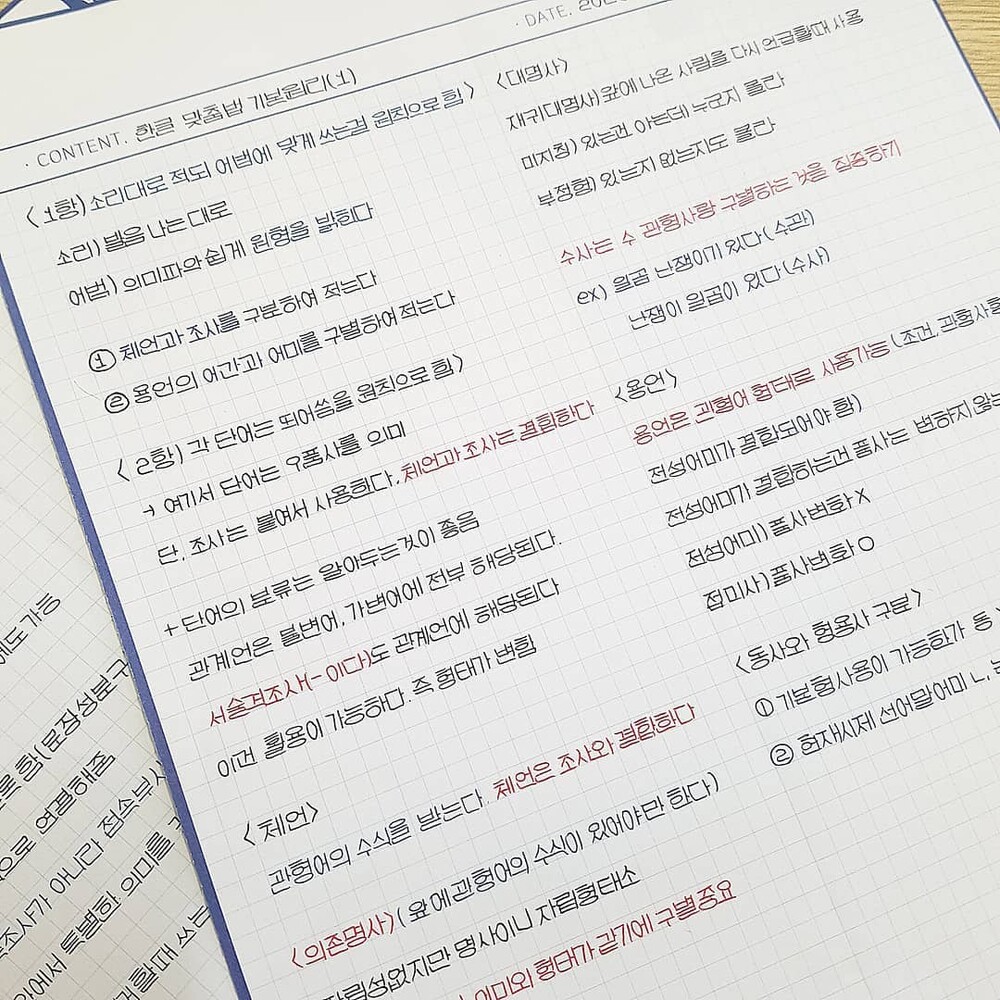 DATE. 202
CONTENT. 한글 맞춤법 기본원리(1)
<1항) 소리대로 적되 어법에 맞게 쓰는걸 원칙으로 함>
소리) 별음 나는대로
어법) 의미파악 쉽게 원형을 밝힌다
① 체언과 조사를 구분하여 적는다
② 용언의 어간과 어미를 구별하여 적는다
<2항) 각 단어는 띄어씀을 원칙으로 함>
→ 여기서 단어는 9품사를 의미
단, 조사는 붙여서 사용한다. 체언과 조사는 결합한다
+ 단어의 분류는 알아두는것이 좋음
관계언은 불변어, 가변어에 전부 해당된다.
서술격조사(-이다)도 관계언에 해당된다
이건 활용이 가능하다. 즉 형태가 변함
<체언>
관형어의 수식을 받는다. 체언은 조사와 결합한다
<의존명사> (앞에 관형어의 수식이 있어야만 한다)
자립성없지만 명사이니 자립형태소
어미와 형태가 같기에 구별중요
<대명사>
재귀(대명사) 앞에 나온 사람을 다시 언급할때 사용
미지칭) 있는건 아는데 누군지 몰라
부정칭) 있는지 없는지도 몰라
수사는 수 관형사랑 구별하는 것을 집중하기
ex) 일곱 난쟁이가 있다 (수관)
난쟁이 일곱이 있다 (수사)
<용언>
용언은 관형어 형태로 사용가능 (조건, 관형사형
전성어미가 결합되어야 함)
전성어미가 결합하는건 품사는 변하지 않는
전성어미) 품사변화 X
접미사) 품사변화 O
<동사와 형용사 구분>
① 기본형사용이 가능한가 동
② 현재시제 선어말어미 ㄴ, 는
에도 가능
로 함 (문장성분구
으로 연결해줌
조사가 아니라 접속부사
안에서 특별한 의미를
할때 쓰는